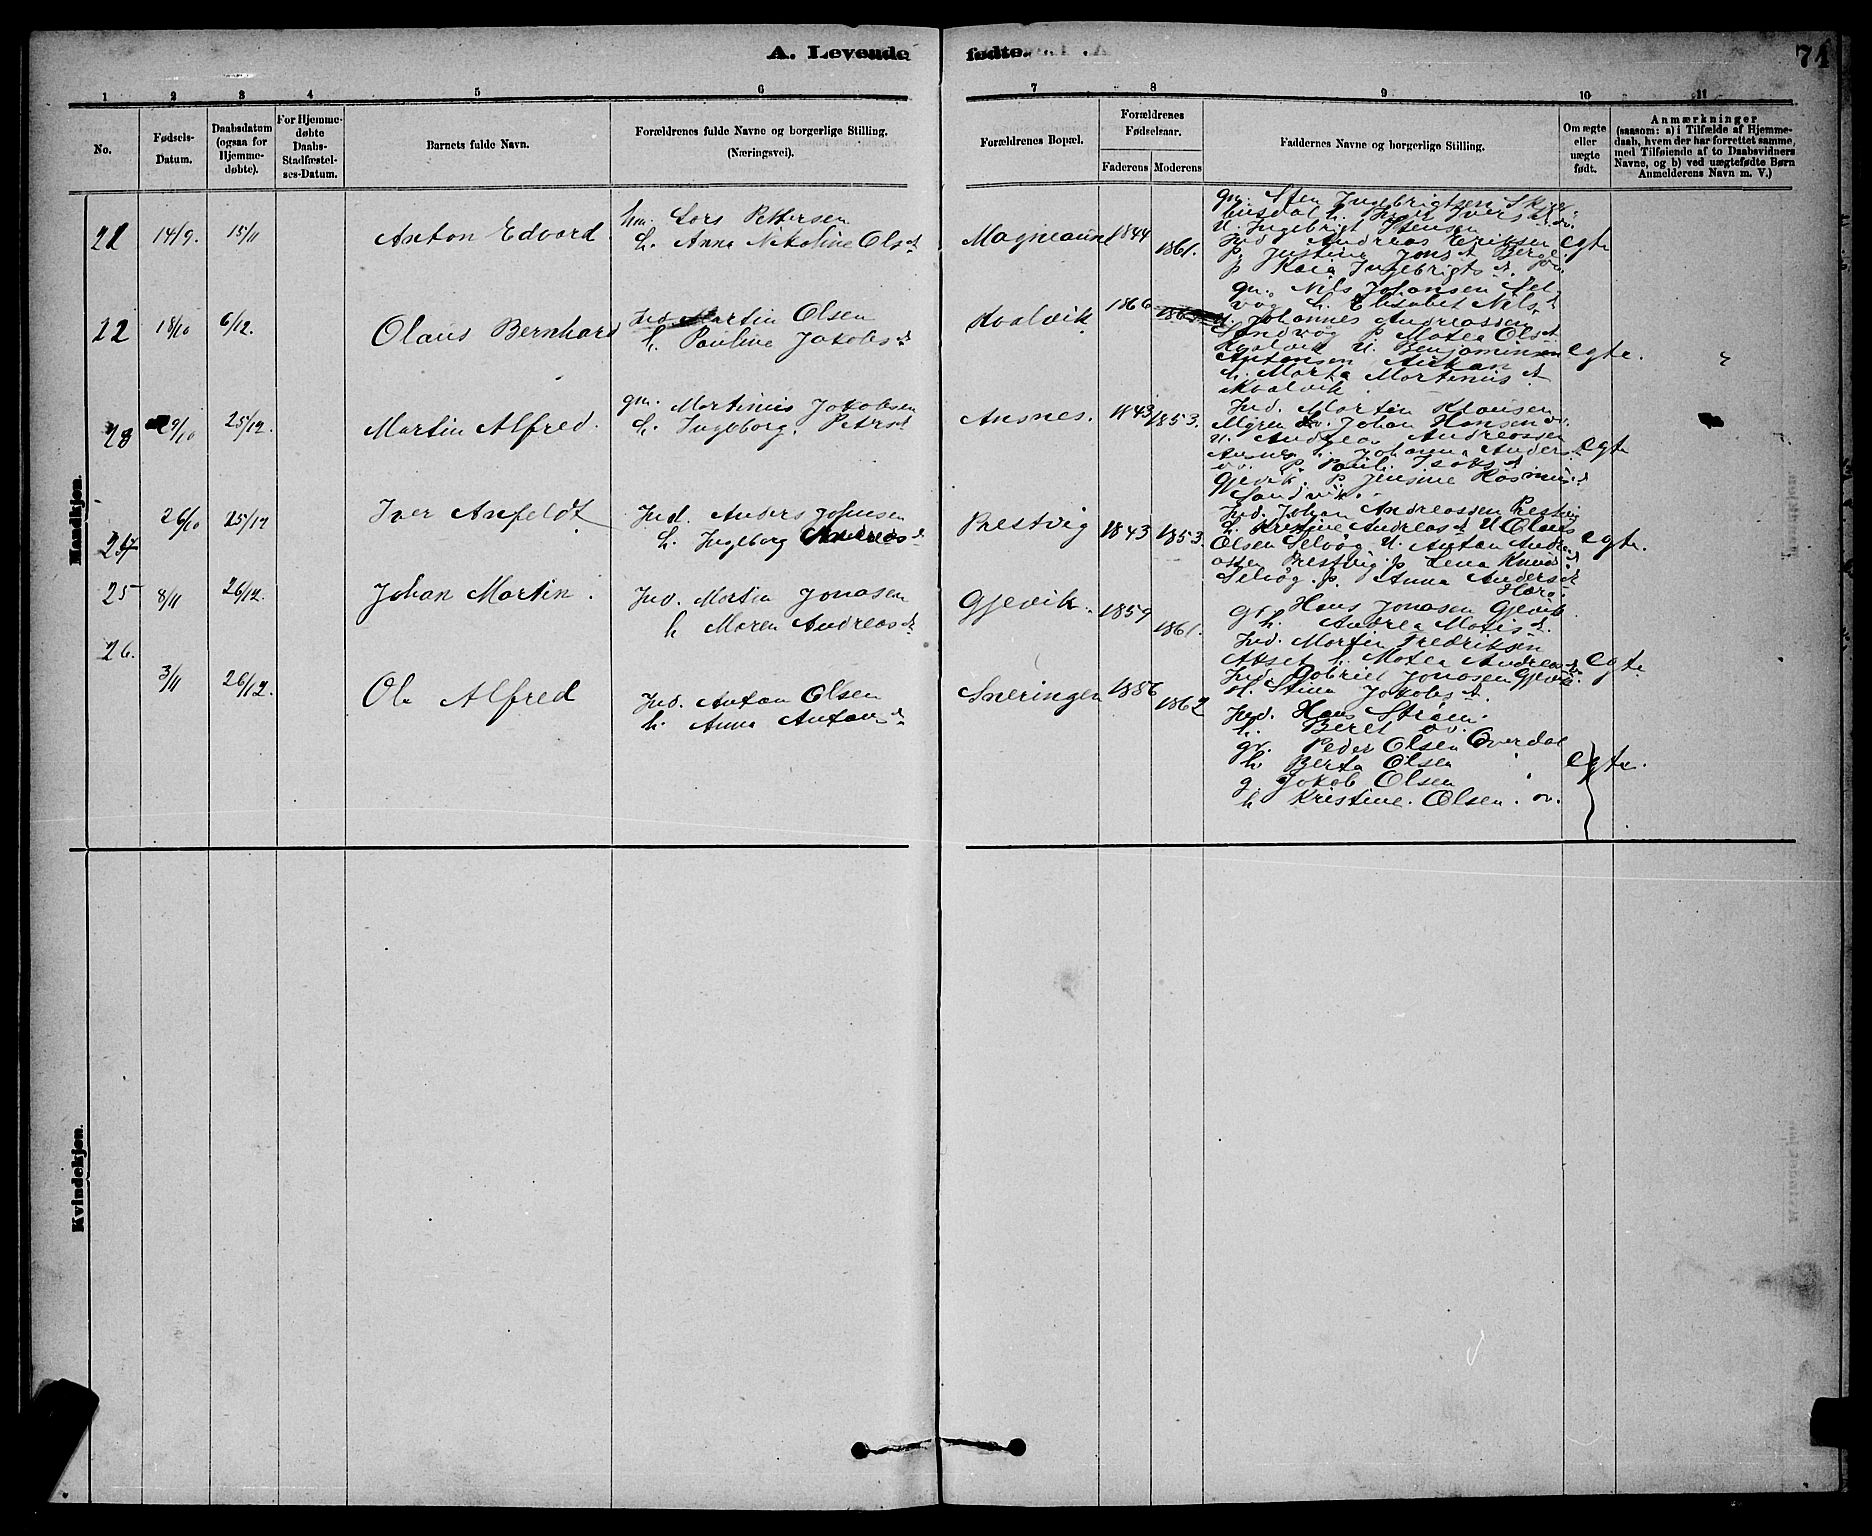 A. Levende fødte. 74
1 2 3 4 5 6 7 8 9 10 11
No.
Fødsels-Datum.
Daabsdatum (ogsaa for Hjemmedøbte).
For Hjemmedøbte Daabs-Stadfæstelses-Datum.
Barnets fulde Navn.
Forældrenes fulde Navne og borgerlige Stilling.
(Næringsvei).
Forældrenes Bopæl.
Forældrenes Fødselsaar.
Faderens Moderens
Faddernes Navne og borgerlige Stilling.
Om ægte eller uægte født.
Anmærkninger
(saasom: a) i Tilfælde af Hjemmedaab, hvem der har forrettet samme, med Tilføiende af to Daabsvidners Navne, og b) ved uægtefødte Børn Anmelderens Navn m. V.)
Mandkjøn.
21 14/9. 15/11 Anton Edvard
hm. Lars Pettersen
h. Anna Nikoline Olsd
Magneaune 1844 1861.
gm. Sten Ingebrigtsen
U. Ingebrigt Stensen
Ind. Andreas Eriksen
p. Justine Jonsd Berge
p Kaia Ingebrigtsd. ov.
egte
22 18/10 6/12. Olaus Bernhard
Ind Martin Olsen
h. Pauline Jakobsd
Kvalvik 1866
gm. Nils Johansen Sel
vog h. Elisabet Nilsd
U. Johannes Andreassen
Sandvog p Matea Olsd
Kvalvik U. Benjaminsen
Antonsen
h. Marta Martinusd
Kvalvik
egte.
23 29/10 25/12. Martin Alfred.
gm. Martinus Jakobsen
h. Ingeborg. Petersd
Ansnes. 1843 1853.
Ind. Martin Klausen
Myren Johan Hansen ov.
U. Andreas Andreassen
Ansnes h. Johanna Anders
ov. p. Isaksd
Gjevik. p. Jensine Rasmusd
Sandvik.
egte
24 26/10 25/12 Iver Anfeldt
Ind. Anders Johnsen
h. Ingeborg Andreasd
Prestvig 1843 1853.
Ind. Johan Andreassen Prestvig
h. Kristine Andreasd U Olaus
Olsen Selvog U. Anton Andre
assen Prestvig p Lena Knudsd
Selvog. p. Anna Andersd
egte.
25 8/11 26/12. Johan Martin.
Ind. Martin Jonasen
h Maren Andreasd
Gjevik. 1859 1861.
gr. Hans Jonasen Gjevik
h. Andrea Matisd.
Ind. Martin Fredriksen
Akset h. Matea Andreasd
Ind Gabriel Jonasen Gjevik.
h. Stina Jakobsd.
egte
26. 3/11 26/12. Ole Alfred
Ind. Anton Olsen
h. Anna Antonsd
Sneringen 1856 1862
Ind. Hans Strøm.
h. Beret ov.
gr. Peder Olsen Overdal
h. Berta Olsen
g. Jakob Olsen
h Kristine. Olsen. ov.
egte.
Kvindekjøn.